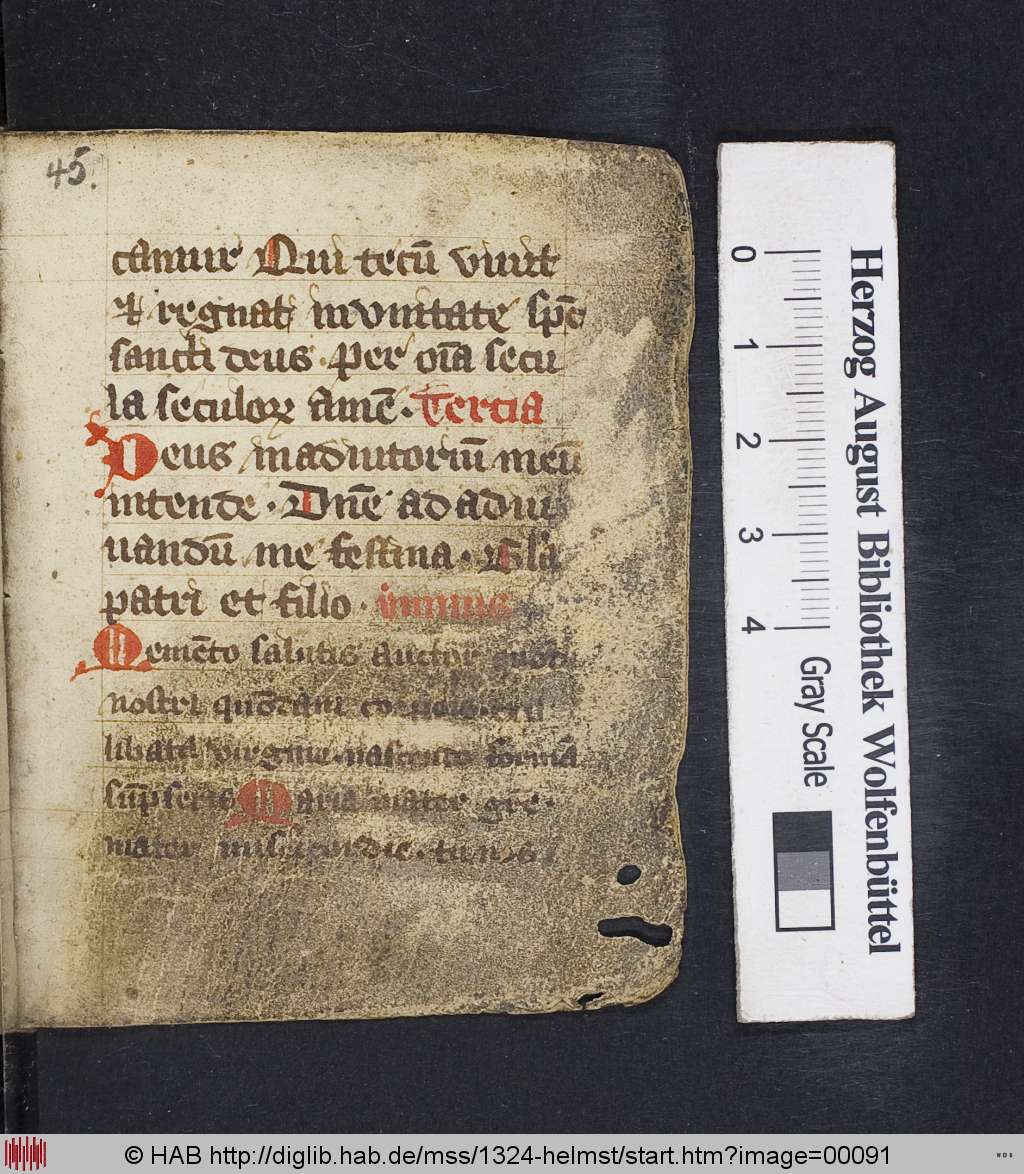 45.
camur Qui tecū viuit
et regnat in vnitate sp̄c
sancti deus. Per oīa secu
la seculoꝝ amē. Tercia
Deus in adiutoriū meū
intende. Dnē ad adiu
uandū me festina. Gl'a
patri et filio. ymnus
Memēto salutis auctor quod
nostri quōdam corporis ex il
libata virgine nascendo formā
sūpseris Maria mater grē.
mater mīscordie. tu nos
Herzog August Bibliothek Wolfenbüttel
0 1 2 3 4
Gray Scale
© HAB http://diglib.hab.de/mss/1324-helmst/start.htm?image=00091